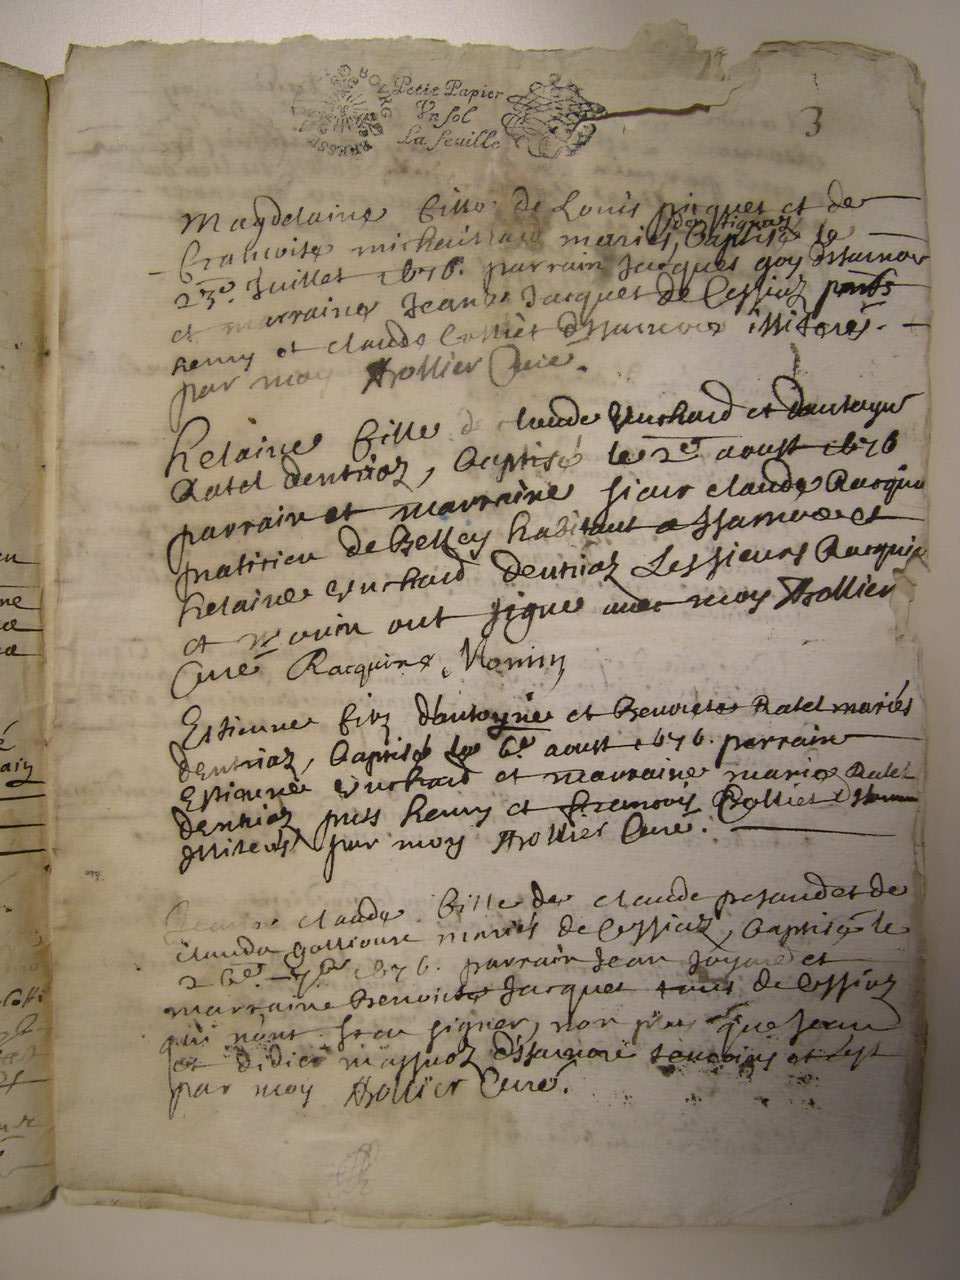 Petit Papier
Un sol
La feuille
3
Magdelaine fille de Louis piquet et de
francoise mariés, baptisé le
23e Juillet 1676. parrain Jacques goy d'Izarnore
et marraine Jeanne Jacquet de Cessiaz pnts
henry et claude d'Izarnore illiterés.
par moy Trollier Curé.
helaine fille de claude Vuchard et d'antoyne
Ratel dentriaz, baptisé le 2e aoust 1676
parrain et marraine sieur claude Racquin
praticien de Belley habitant a Izarnore et
helaine Vuchard dentriaz Lessieurs Racquin
et Monin ont signe avec moy Trollier
Curé Racquine, Monin
Estienne filz d'antoyne et Benoiste Ratel mariés
dentriaz, baptisé le 6e aoust 1676. parrain
Estienne Vuchard et marraine marie Ratel
dentriaz pnts henry et francois
illiterés par moy Trollier Curé.
claude fille de claude et de
clauda mariés de Cessiaz, baptisée le
26e 7bre 1676. parrain Jean et
marraine Benoiste Jacquet tous de Cessiaz
qui n'ont sceu signer, non plus que Jean
et didier d'Izarnore tesmoins
par moy Trollier Curé.